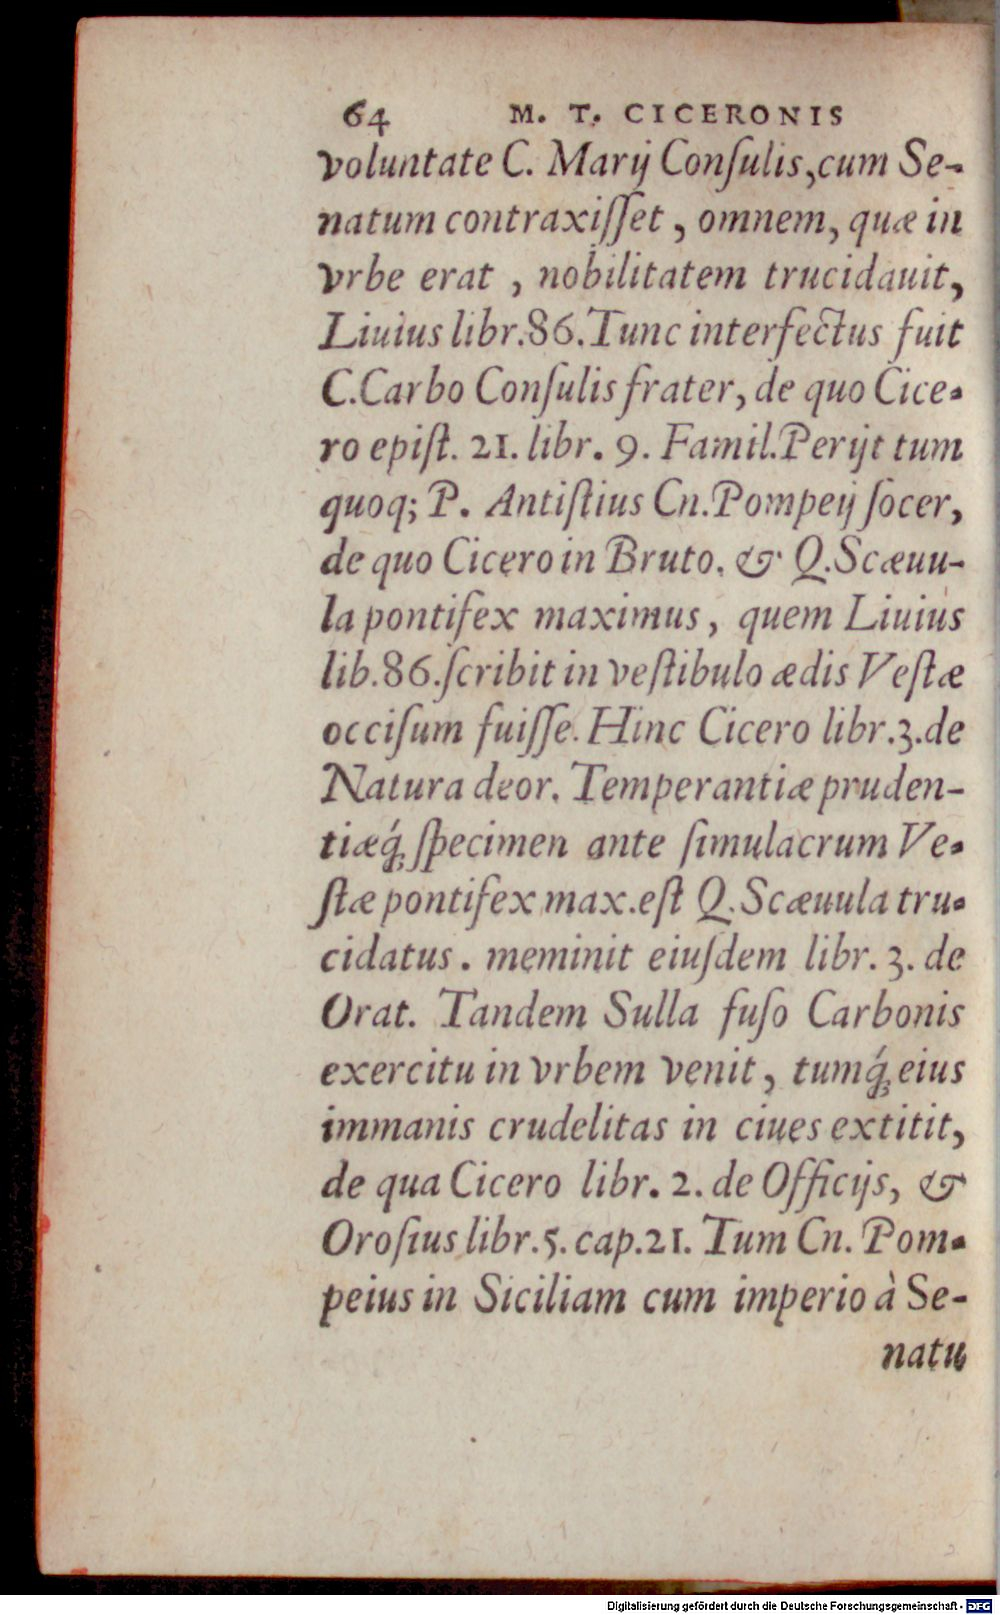 64 M. T. CICERONIS
voluntate C. Marij Conſulis, cum Se-
natum contraxiſſet, omnem, quæ in
vrbe erat, nobilitatem trucidauit,
Liuius libr. 86. Tunc interfectus fuit
C. Carbo Conſulis frater, de quo Cice-
ro epiſt. 21. libr. 9. Famil. Perijt tum
quoq; P. Antiſtius Cn. Pompeij ſocer,
de quo Cicero in Bruto. & Q. Scæuu-
la pontifex maximus, quem Liuius
lib. 86. ſcribit in veſtibulo ædis Veſtæ
occiſum fuiſſe. Hinc Cicero libr. 3. de
Natura deor. Temperantiæ pruden-
tiæq́; ſpecimen ante ſimulacrum Ve-
ſtæ pontifex max. eſt Q. Scæuula tru-
cidatus. meminit eiuſdem libr. 3. de
Orat. Tandem Sulla fuſo Carbonis
exercitu in vrbem venit, tumq́; eius
immanis crudelitas in ciues extitit,
de qua Cicero libr. 2. de Officijs, &
Oroſius libr. 5. cap. 21. Tum Cn. Pom-
peius in Siciliam cum imperio à Se-
natu
Digitalisierung gefördert durch die Deutsche Forschungsgemeinschaft - DFG